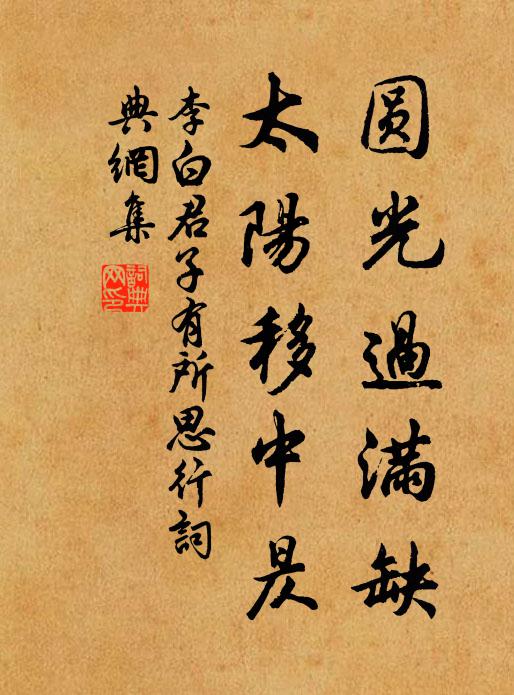 圆光過滿缺
太陽移中昃
李白君子有所思行詞
典網集
詞典
网印